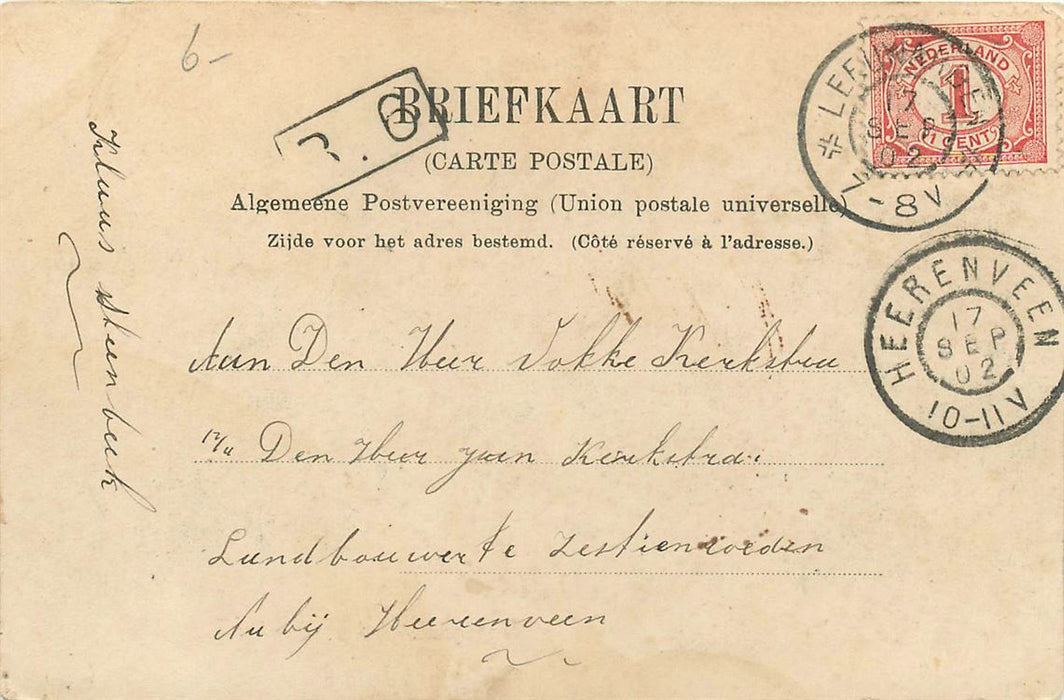 6-
P. G
BRIEFKAART
(CARTE POSTALE)
Algemeene Postvereeniging (Union postale universelle)
Zijde voor het adres bestemd. (Côté réservé à l'adresse.)
NEDERLAND
1
1 CENT
LEEUWARDEN
17
SEP
02
7-8V
HEERENVEEN
17
SEP
02
10-11V
Aan Den Heer Fokke Kerkstra
p/a Den Heer Jan Kerkstra
Landbouwer te Zestienroeden
Nabij Heerenveen
Klaas Steenbeek